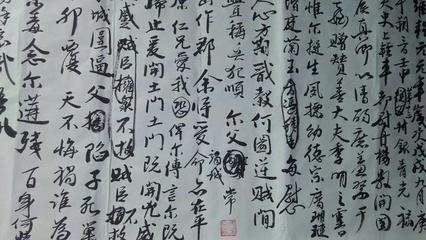 維乾元元年歲次戊戌九月庚
午朔三日壬申州銀青光祿
史上輕車都尉丹楊縣開國
侯真卿以清酌庶羞祭于
姪贈贊善大夫季明之靈
惟爾挺生夙標幼德宗廟瑚璉
階庭蘭玉每慰
人心方期戩穀何圖逆賊間
釁稱兵犯順爾父竭誠常
山作郡余時受命亦在平
原仁兄愛我俾爾傳言爾既
歸止爰開土門土門既開凶威
蹙賊臣擁眾不救賊臣不救
城圍逼父陷子死巢
卵覆天不悔禍誰為
荼毒念爾遘殘百身何